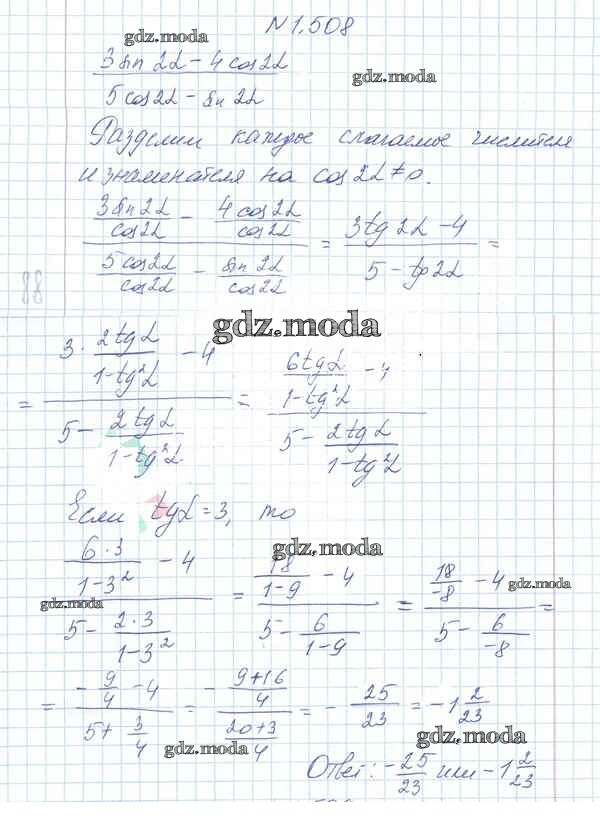 N 1.508
gdz.moda
(3 sin 2α − 4 cos 2α) / (5 cos 2α − sin 2α)
gdz.moda
Разделим каждое слагаемое числителя
и знаменателя на cos 2α ≠ 0.
(3 sin 2α / cos 2α − 4 cos 2α / cos 2α) / (5 cos 2α / cos 2α − sin 2α / cos 2α) = (3 tg 2α − 4) / (5 − tg 2α) =
88
gdz.moda
= (3 · 2 tg α / (1 − tg²α) − 4) / (5 − 2 tg α / (1 − tg²α)) = (6 tg α / (1 − tg²α) − 4) / (5 − 2 tg α / (1 − tg²α))
Если tg α = 3, то
gdz.moda
(6 · 3 / (1 − 3²) − 4) / (5 − 2 · 3 / (1 − 3²)) = (18 / (1 − 9) − 4) / (5 − 6 / (1 − 9)) = (18 / −8 − 4) / (5 − 6 / −8) =
gdz.moda
gdz.moda
= (− 9/4 − 4) / (5 + 3/4) = − ((9 + 16) / 4) / ((20 + 3) / 4) = − 25/23 = − 1 2/23
gdz.moda
gdz.moda
Ответ: − 25/23 или − 1 2/23